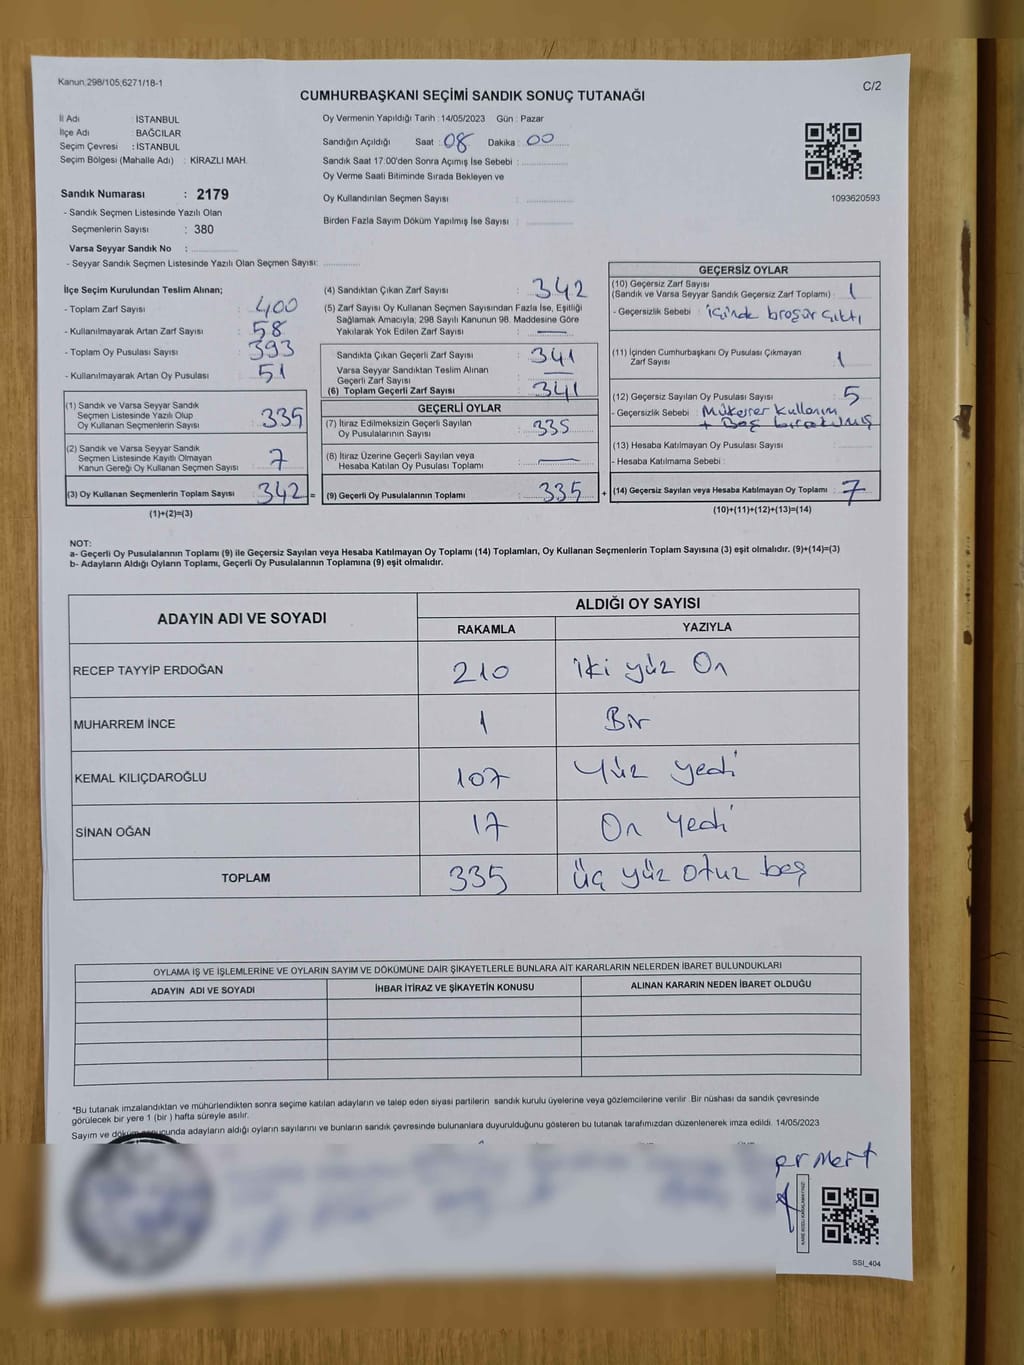 Kanun 298/105,6271/18-1
C/2
CUMHURBAŞKANI SEÇİMİ SANDIK SONUÇ TUTANAĞI
İl Adı : İSTANBUL
İlçe Adı : BAĞCILAR
Seçim Çevresi : İSTANBUL
Seçim Bölgesi (Mahalle Adı) : KİRAZLI MAH.
Sandık Numarası : 2179
- Sandık Seçmen Listesinde Yazılı Olan
Seçmenlerin Sayısı : 380
Varsa Seyyar Sandık No :
- Seyyar Sandık Seçmen Listesinde Yazılı Olan Seçmen Sayısı:
Oy Vermenin Yapıldığı Tarih : 14/05/2023 Gün : Pazar
Sandığın Açıldığı Saat : 08 Dakika : 00
Sandık Saat 17:00'den Sonra Açımış İse Sebebi :
Oy Verme Saati Bitiminde Sırada Bekleyen ve
Oy Kullandırılan Seçmen Sayısı :
Birden Fazla Sayım Döküm Yapılmış İse Sayısı :
1093620593
İlçe Seçim Kurulundan Teslim Alınan;
- Toplam Zarf Sayısı : 400
- Kullanılmayarak Artan Zarf Sayısı : 58
- Toplam Oy Pusulası Sayısı : 393
- Kullanılmayarak Artan Oy Pusulası : 51
(1) Sandık ve Varsa Seyyar Sandık
Seçmen Listesinde Yazılı Olup
Oy Kullanan Seçmenlerin Sayısı : 335
(2) Sandık ve Varsa Seyyar Sandık
Seçmen Listesinde Kayıtlı Olmayan
Kanun Gereği Oy Kullanan Seçmen Sayısı : 7
(3) Oy Kullanan Seçmenlerin Toplam Sayısı : 342 =
(1)+(2)=(3)
(4) Sandıktan Çıkan Zarf Sayısı : 342
(5) Zarf Sayısı Oy Kullanan Seçmen Sayısından Fazla İse, Eşitliği
Sağlamak Amacıyla; 298 Sayılı Kanunun 98. Maddesine Göre
Yakılarak Yok Edilen Zarf Sayısı : —
Sandıkta Çıkan Geçerli Zarf Sayısı : 341
Varsa Seyyar Sandıktan Teslim Alınan
Geçerli Zarf Sayısı : —
(6) Toplam Geçerli Zarf Sayısı : 341
GEÇERLİ OYLAR
(7) İtiraz Edilmeksizin Geçerli Sayılan
Oy Pusulalarının Sayısı : 335
(8) İtiraz Üzerine Geçerli Sayılan veya
Hesaba Katılan Oy Pusulası Toplamı : —
(9) Geçerli Oy Pusulalarının Toplamı : 335 +
GEÇERSİZ OYLAR
(10) Geçersiz Zarf Sayısı
(Sandık ve Varsa Seyyar Sandık Geçersiz Zarf Toplamı) : 1
- Geçersizlik Sebebi : içinde broşür çıktı
(11) İçinden Cumhurbaşkanı Oy Pusulası Çıkmayan
Zarf Sayısı : 1
(12) Geçersiz Sayılan Oy Pusulası Sayısı : 5
- Geçersizlik Sebebi : Mükerrer kullanım
+ Boş bırakılmış
(13) Hesaba Katılmayan Oy Pusulası Sayısı :
- Hesaba Katılmama Sebebi :
(14) Geçersiz Sayılan veya Hesaba Katılmayan Oy Toplamı : 7
(10)+(11)+(12)+(13)=(14)
NOT:
a- Geçerli Oy Pusulalarının Toplamı (9) ile Geçersiz Sayılan veya Hesaba Katılmayan Oy Toplamı (14) Toplamları, Oy Kullanan Seçmenlerin Toplam Sayısına (3) eşit olmalıdır. (9)+(14)=(3)
b- Adayların Aldığı Oyların Toplamı, Geçerli Oy Pusulalarının Toplamına (9) eşit olmalıdır.
ADAYIN ADI VE SOYADI
ALDIĞI OY SAYISI
RAKAMLA YAZIYLA
RECEP TAYYİP ERDOĞAN 210 iki yüz On
MUHARREM İNCE 1 Bir
KEMAL KILIÇDAROĞLU 107 Yüz yedi
SİNAN OĞAN 17 On Yedi
TOPLAM 335 üç yüz otuz beş
OYLAMA İŞ VE İŞLEMLERİNE VE OYLARIN SAYIM VE DÖKÜMÜNE DAİR ŞİKAYETLERLE BUNLARA AİT KARARLARIN NELERDEN İBARET BULUNDUKLARI
ADAYIN ADI VE SOYADI İHBAR İTİRAZ VE ŞİKAYETİN KONUSU ALINAN KARARIN NEDEN İBARET OLDUĞU
*Bu tutanak imzalandıktan ve mühürlendikten sonra seçime katılan adayların ve talep eden siyasi partilerin sandık kurulu üyelerine veya gözlemcilerine verilir. Bir nüshası da sandık çevresinde
görülecek bir yere 1 (bir ) hafta süreyle asılır.
Sayım ve döküm sonucunda adayların aldığı oyların sayılarını ve bunların sandık çevresinde bulunanlara duyurulduğunu gösteren bu tutanak tarafımızdan düzenlenerek imza edildi. 14/05/2023
Mert
SSI_404